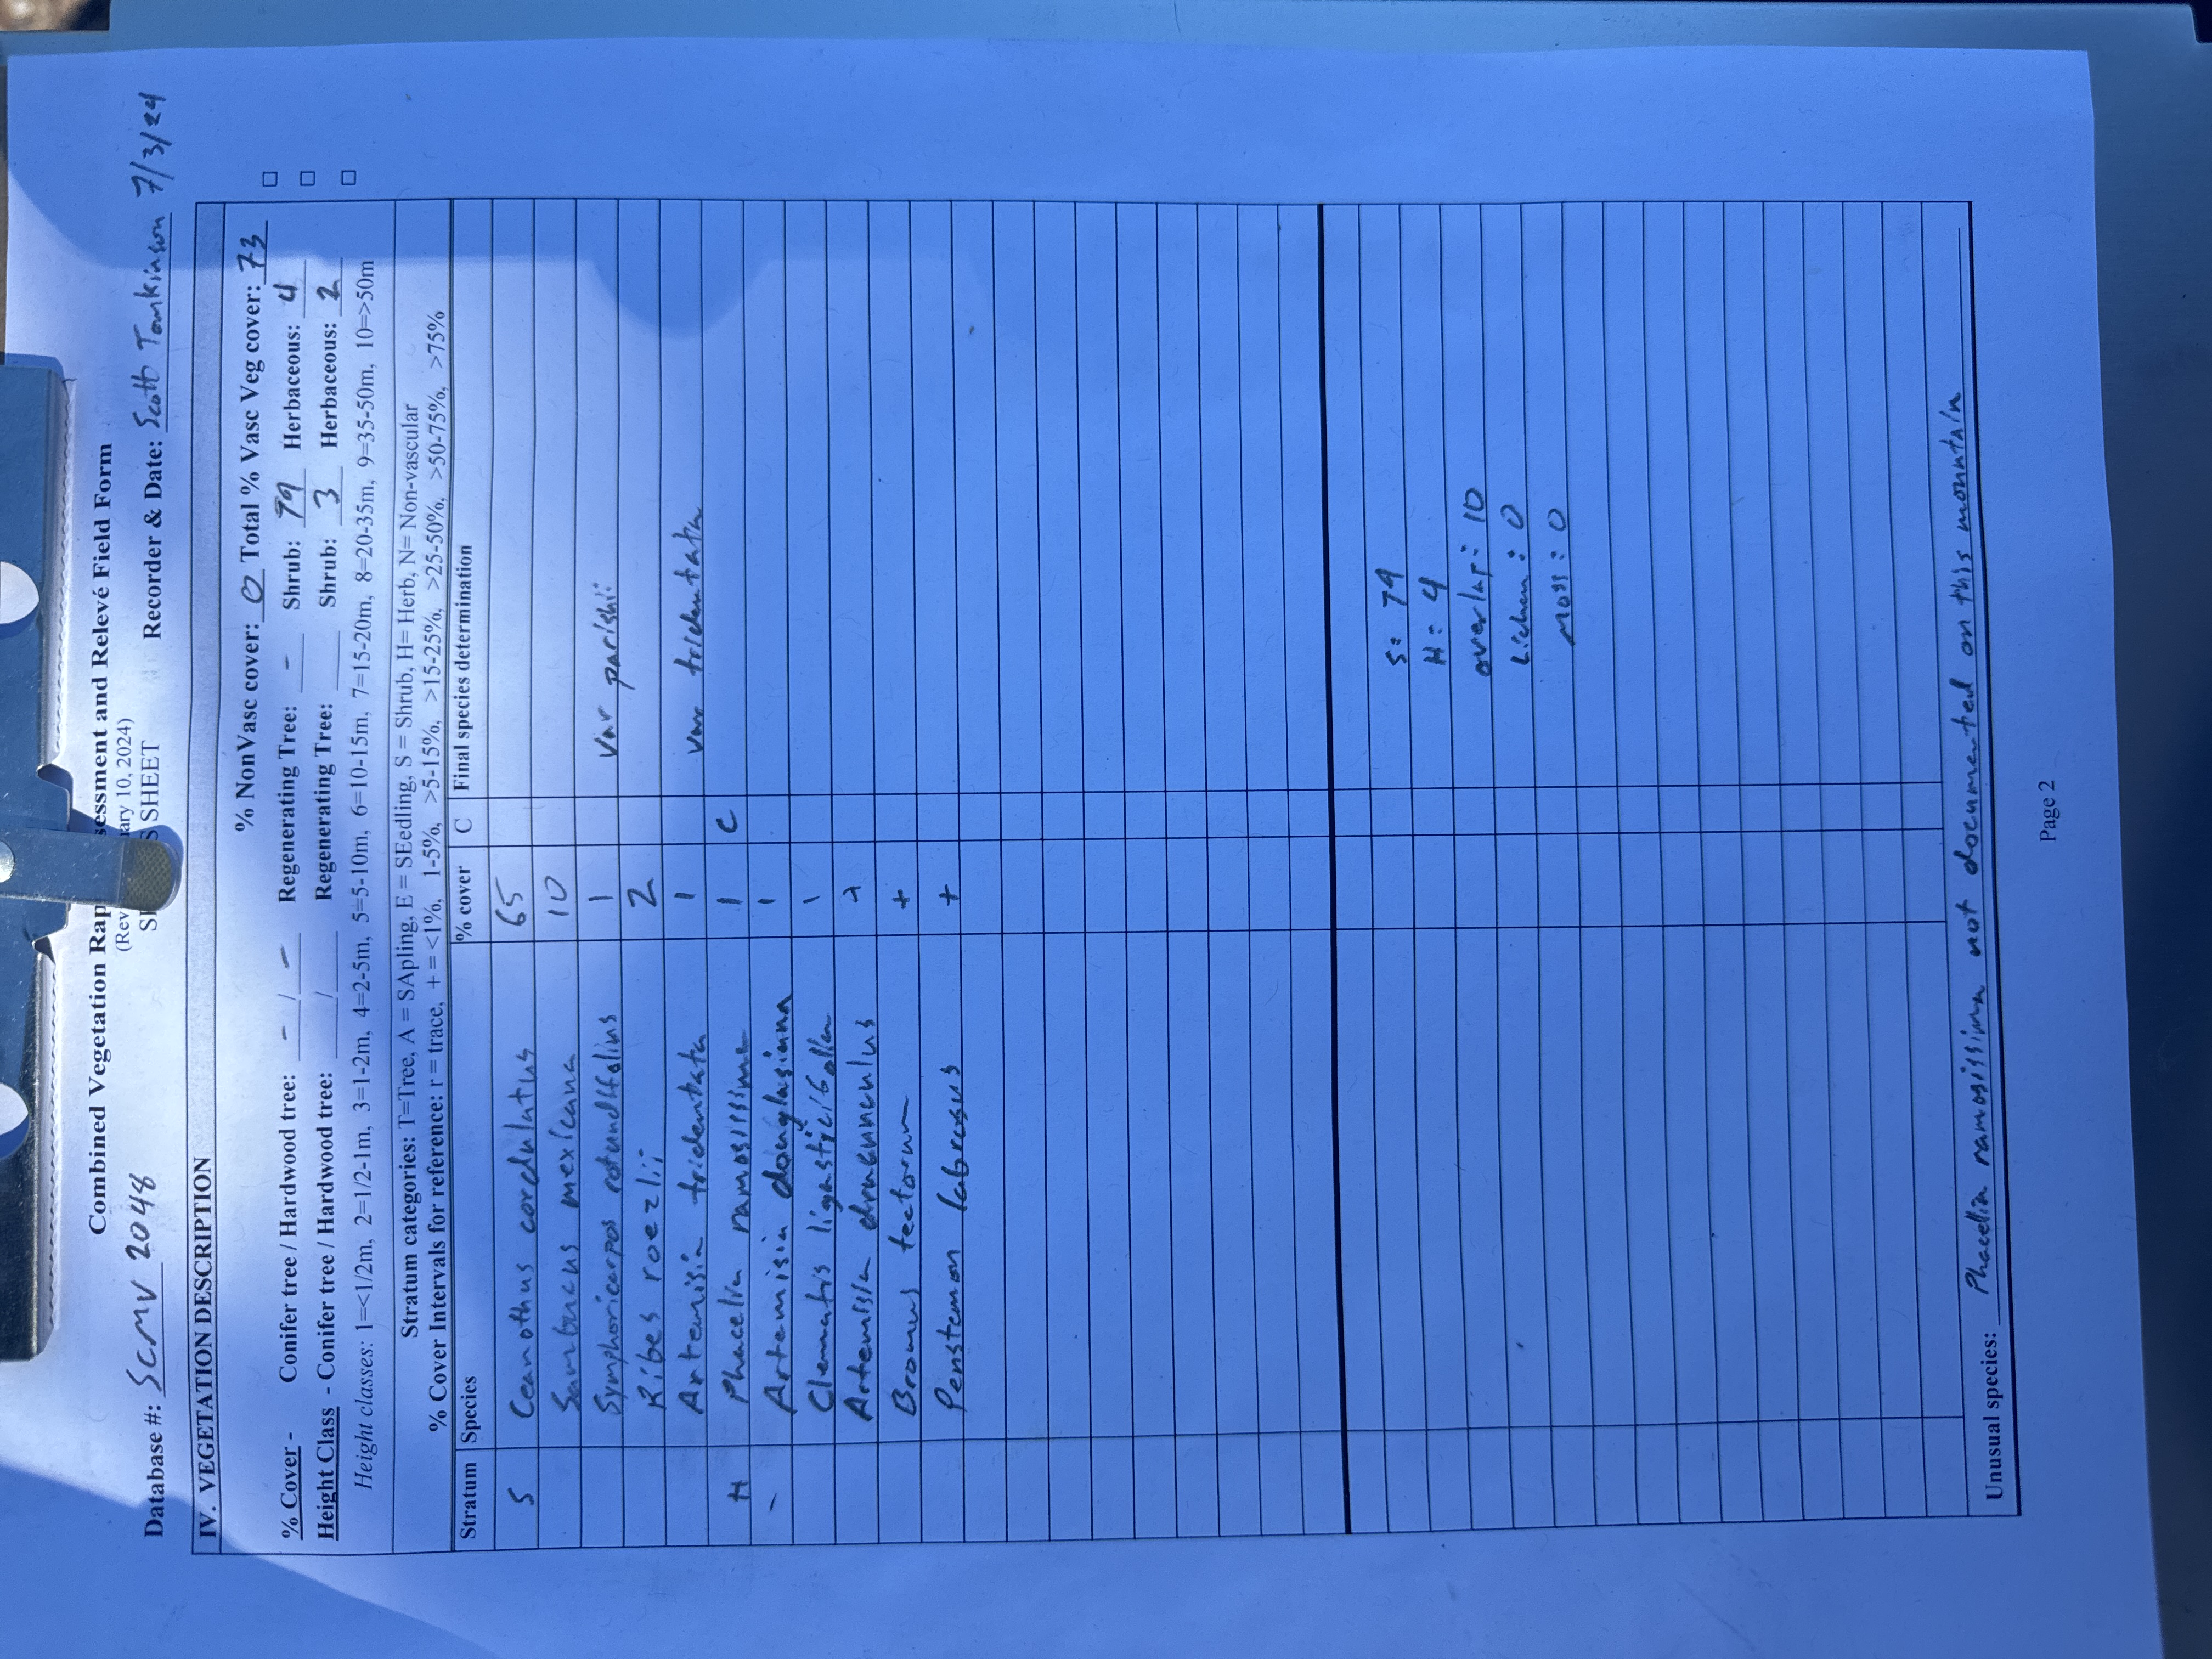 Combined Vegetation Rap essment and Relevé Field Form
(Rev ary 10, 2024)
S SHEET
Database #: SCMV 2048 Recorder & Date: Scott Tomkinson 7/3/24
IV. VEGETATION DESCRIPTION
% NonVasc cover: 0 Total % Vasc Veg cover: 73
% Cover - Conifer tree / Hardwood tree: - / - Regenerating Tree: - Shrub: 79 Herbaceous: 4
Height Class - Conifer tree / Hardwood tree: / Regenerating Tree: Shrub: 3 Herbaceous: 2
Height classes: 1=<1/2m, 2=1/2-1m, 3=1-2m, 4=2-5m, 5=5-10m, 6=10-15m, 7=15-20m, 8=20-35m, 9=35-50m, 10=>50m
Stratum categories: T=Tree, A = SApling, E = SEedling, S = Shrub, H= Herb, N= Non-vascular
% Cover Intervals for reference: r = trace, + = <1%, 1-5%, >5-15%, >15-25%, >25-50%, >50-75%, >75%
Stratum Species % cover C Final species determination
S Ceanothus cordulatus 65
Sambucus mexicana 10
Symphoricarpos rotundifolius 1 var parishii
Ribes roezlii 2
Artemisia tridentata 1 var tridentata
H Phacelia ramosissima 1 C
- Artemisia douglasiana 1
Clematis ligusticifolia 1
Artemisia dracunculus
Bromus tectorum +
Penstemon labrosus +
S: 79
H: 4
overlap: 10
Lichen: 0
moss: 0
Unusual species: Phacelia ramosissima not documented on this mountain
Page 2